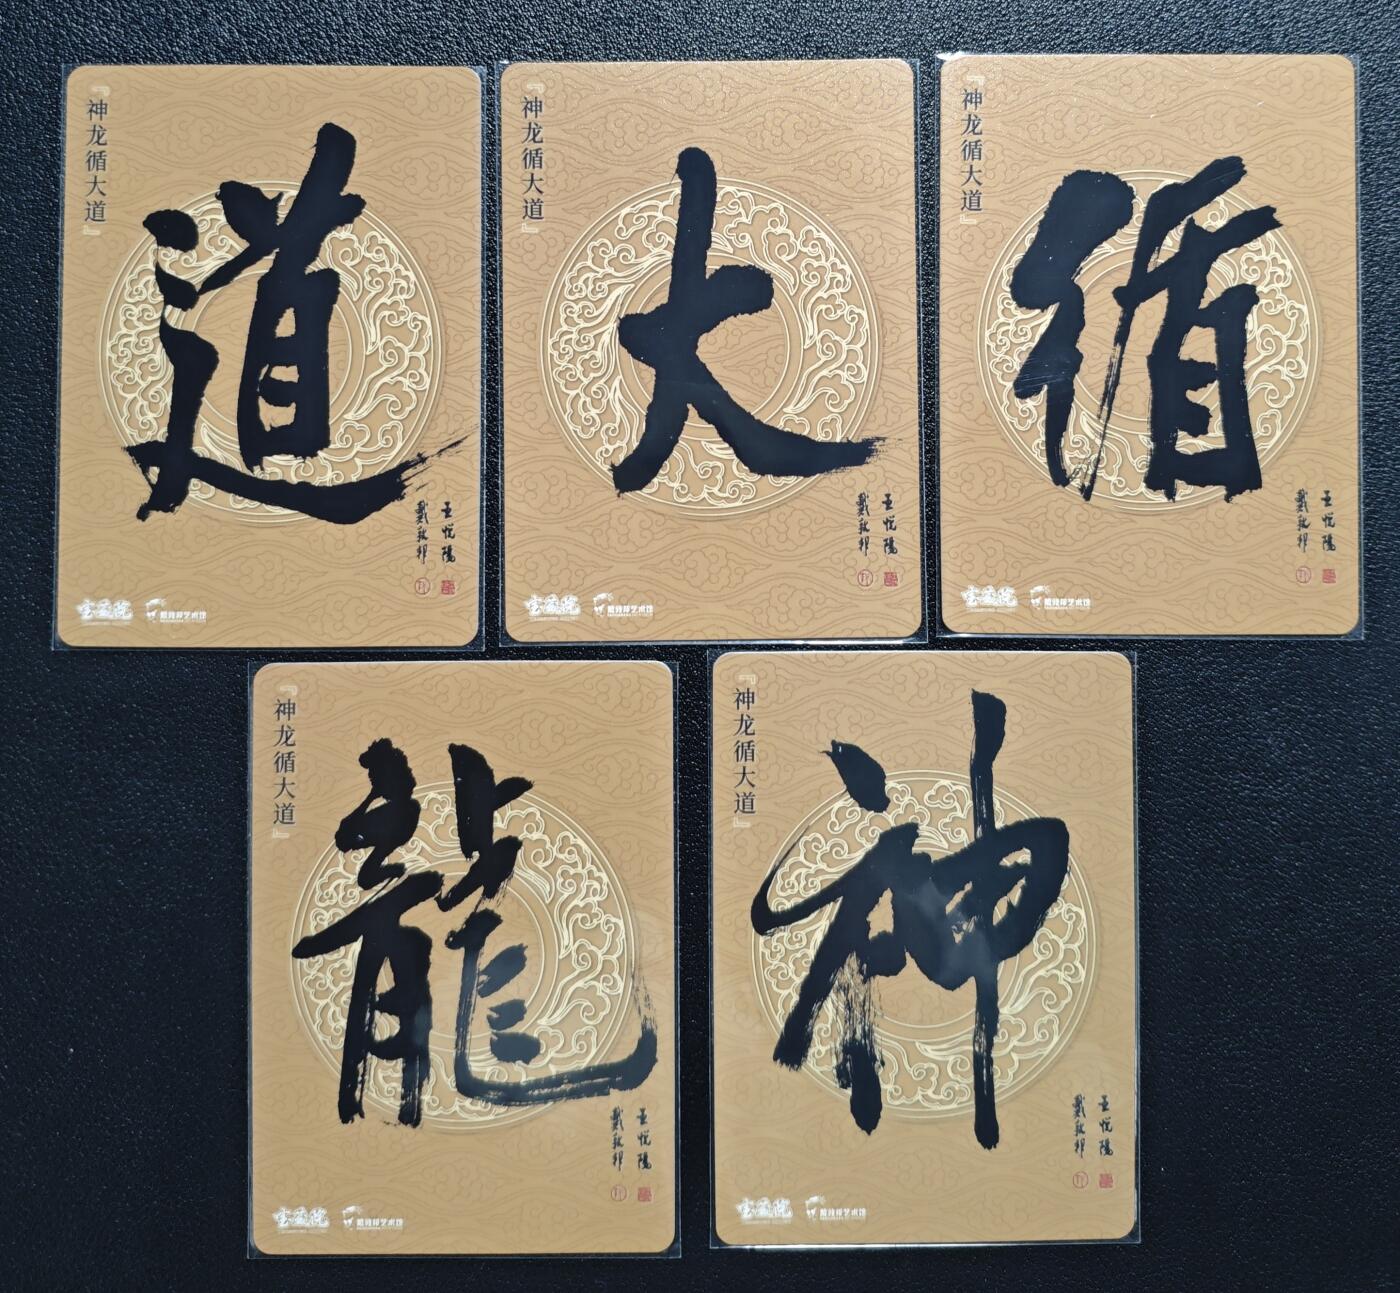 『神龙循大道』
道
王悦阳
戴敦邦
『神龙循大道』
大
王悦阳
戴敦邦
『神龙循大道』
循
王悦阳
戴敦邦
『神龙循大道』
龍
王悦阳
戴敦邦
『神龙循大道』
神
王悦阳
戴敦邦